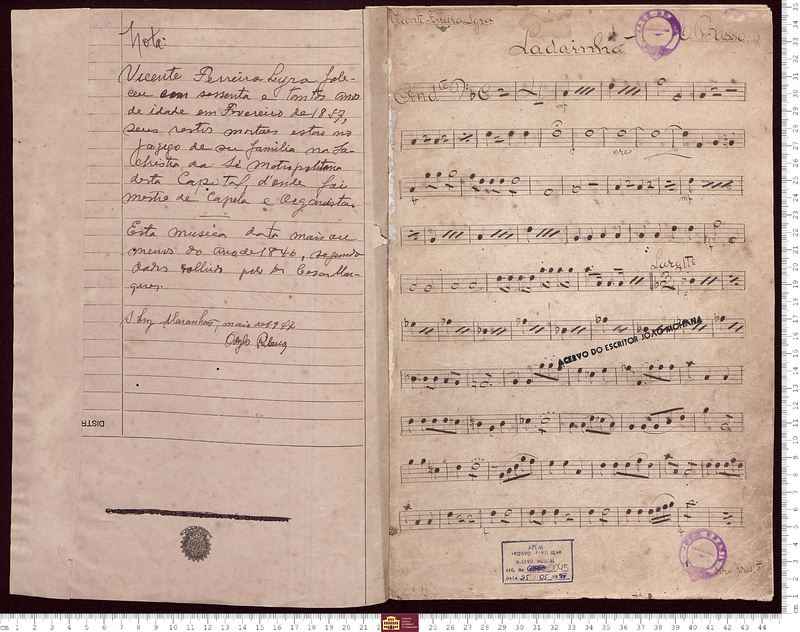 Nota:
Vicente Ferreira Lyra fale-
ceu com sessenta e tantos anos
de idade em Fevereiro de 1857,
seus restos mortaes estão no
jazigo de su familia na Sa-
christia da Sé Metropolitana
desta Capital, d'onde foi
mestre de Capela e Organista.
Esta musica data mais ou
menos do ano de 1840, segundo
dados colhidos pelo Dr Cesar Mar-
ques.
S. Luiz Maranhão, maio de 1947
DISTR
Vicente Ferreira Lyra
Ladainha
Basso
Andte
mf
cres
f
mf
f
Largtto
ACERVO DO ESCRITOR JOÃO MOHANA
f
f
APEM
ARQUIVO PARTICULAR
ACERVO MUSICAL
REG. No
DATA 25 / 05 / 1998